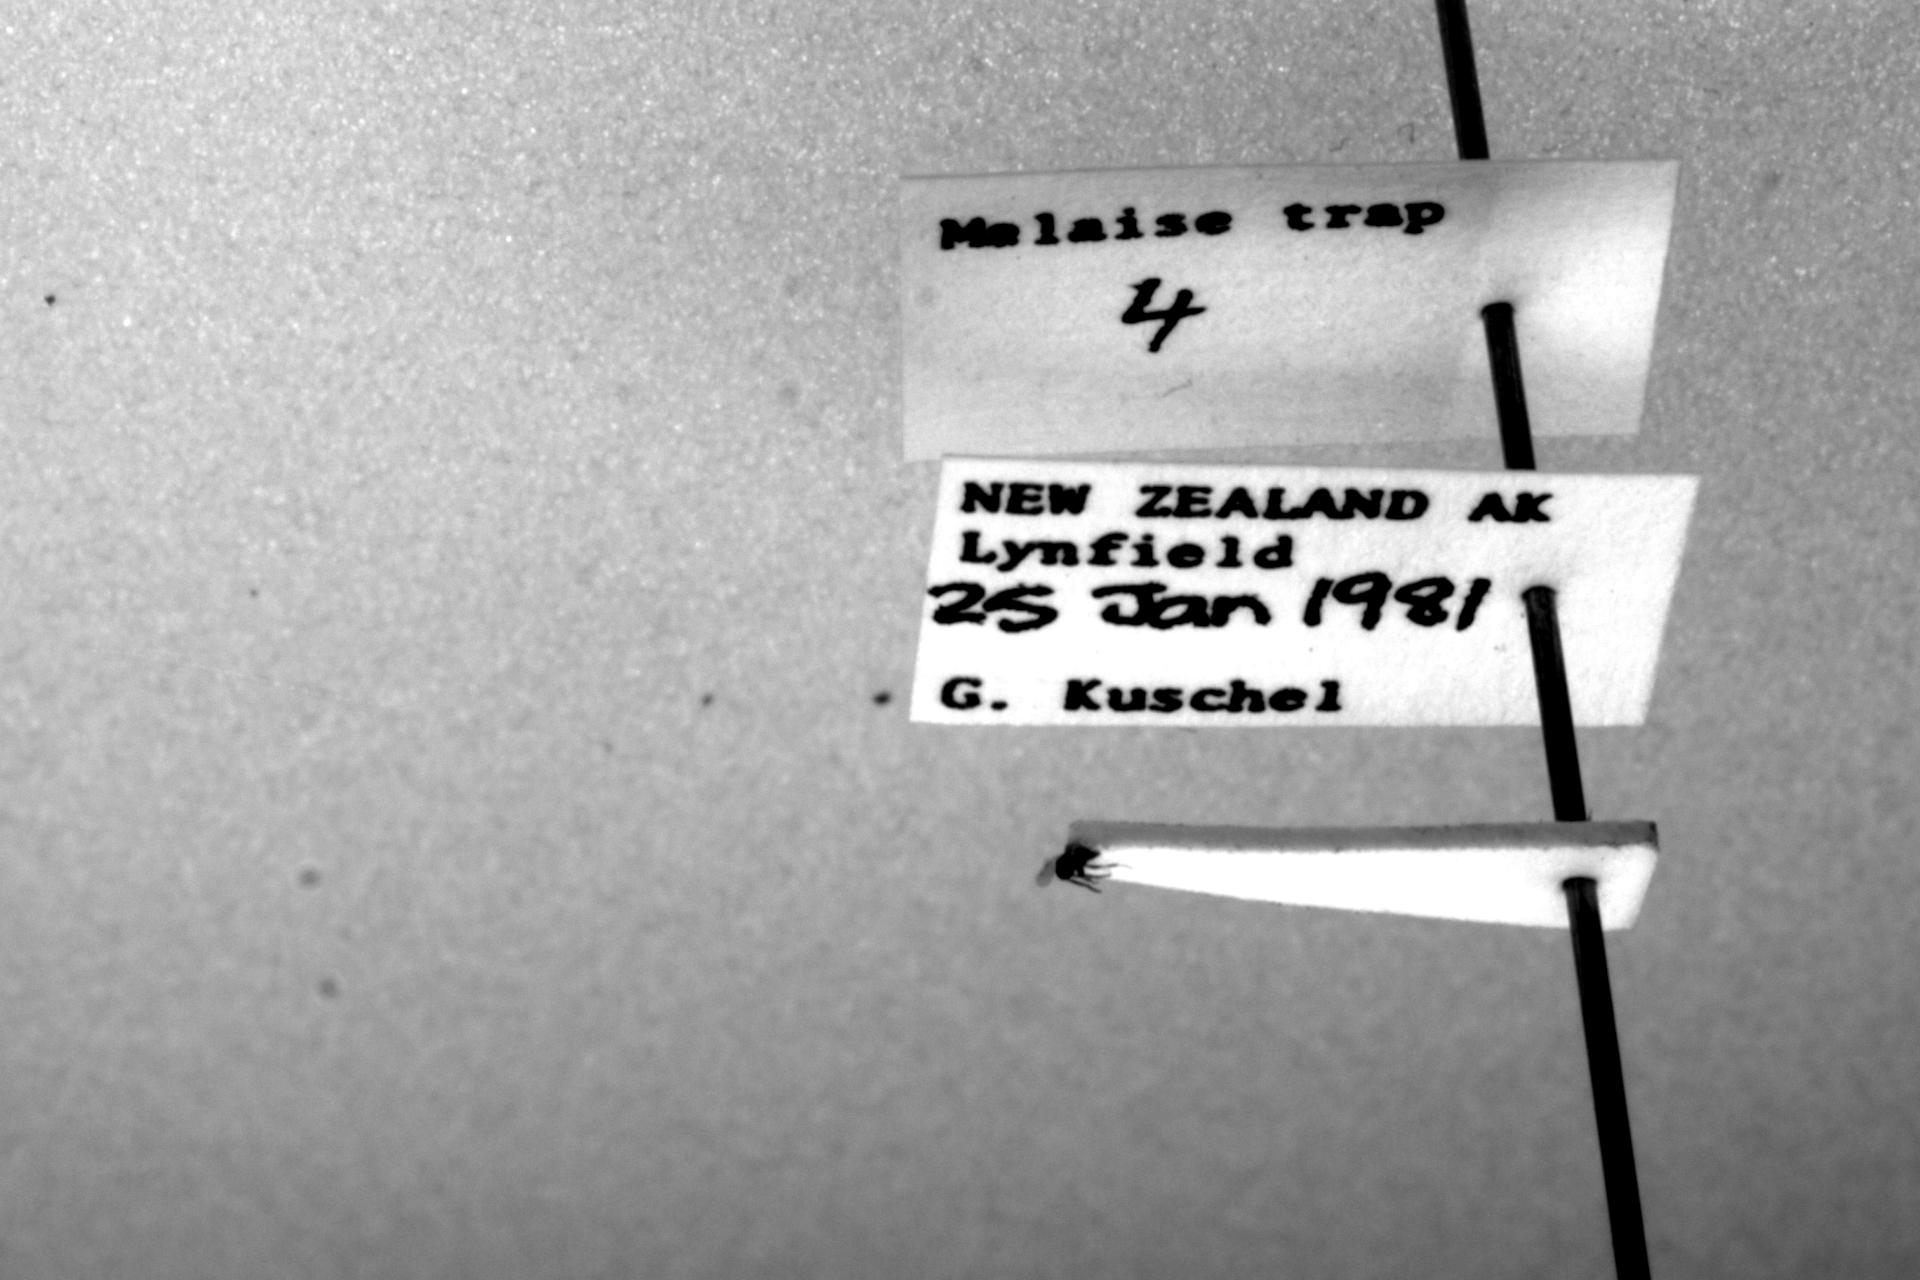 Malaise trap
4
NEW ZEALAND AK
Lynfield
25 Jan 1981
G. Kuschel